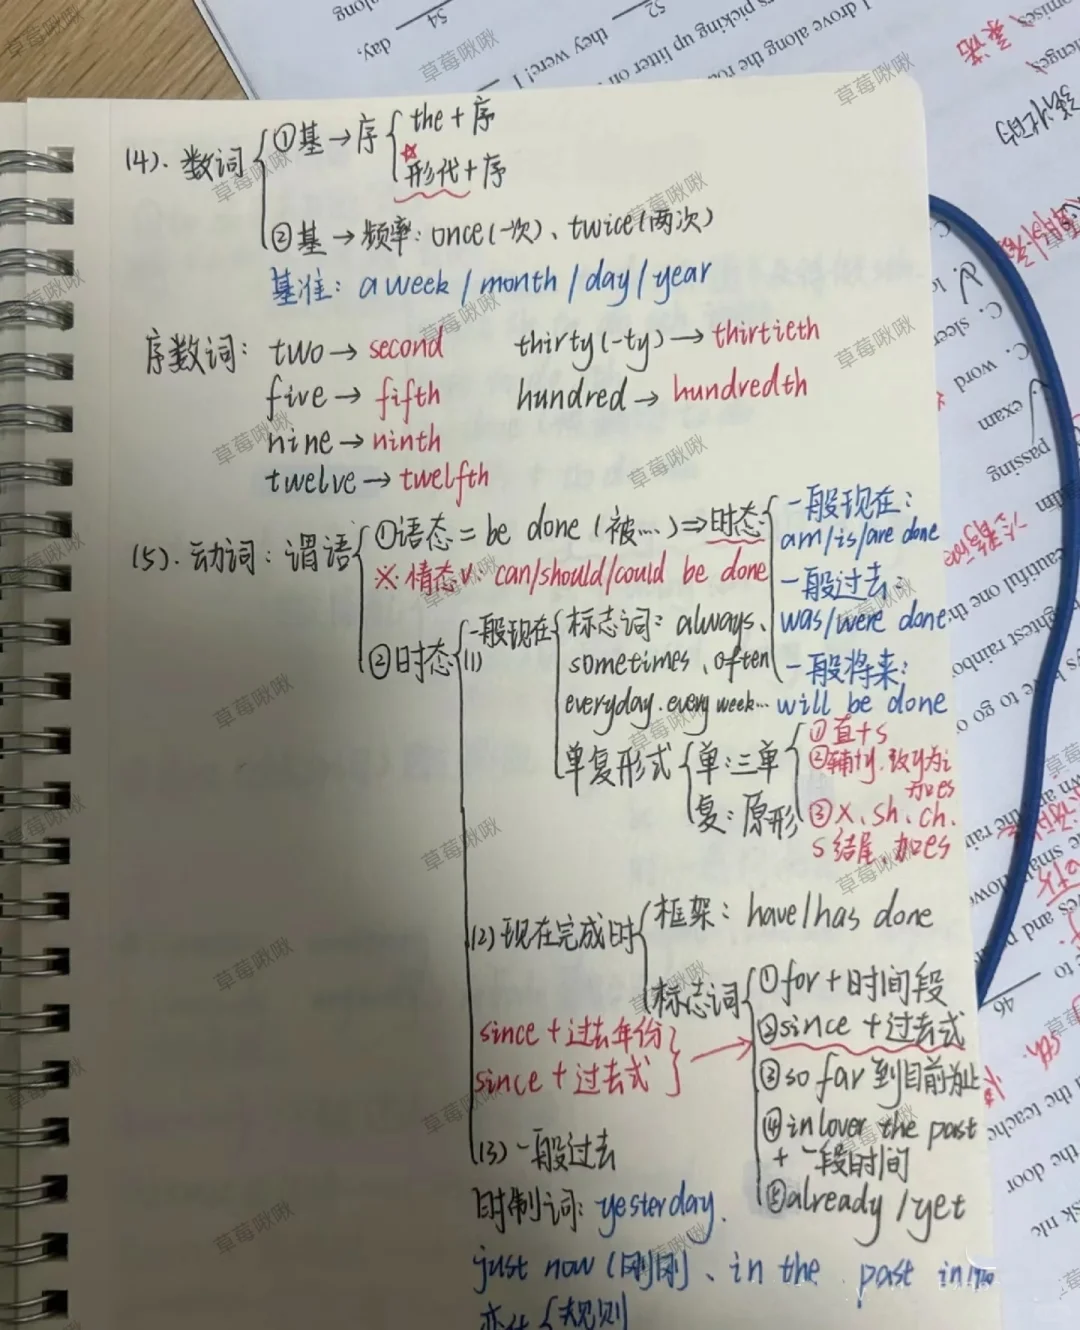 (4). 数词
①基→序
the+序
☆
形代+序
②基→频率: once(一次)、twice(两次)
基准: a week / month / day / year
序数词: two→second thirty(-ty)→thirtieth
five→fifth hundred→hundredth
nine→ninth
twelve→twelfth
(5). 动词: 谓语
①语态=be done (被…)⇒时态
一般现在:
am/is/are done
一般过去:
was/were done
一般将来:
will be done
※情态v. can/should/could be done
②时态
(1)一般现在
标志词: always、
sometimes、often
everyday. every week…
单复形式
单:三单
复:原形
①直+s
②辅+y.改y为i
加es
③x、sh、ch、
s结尾、加es
(2)现在完成时
框架: have/has done
标志词
①for+时间段
②since+过去式
③so far到目前为止
④in/over the past
+一段时间
⑤already/yet
since+过去年份
since+过去式
(3)一般过去
时制词: yesterday.
just now(刚刚)、in the past
规则
草莓啾啾
54
52
day,
they were! I
picking up litter
I drove along the
46
passing
exam
word
C. sleep
the door